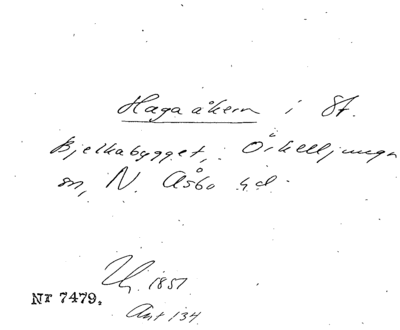 Hagaåkern i St.
Bjelkabygget, Örkelljunga
sn, N. Åsbo hd.
1851
Nr 7479.
Ant 134